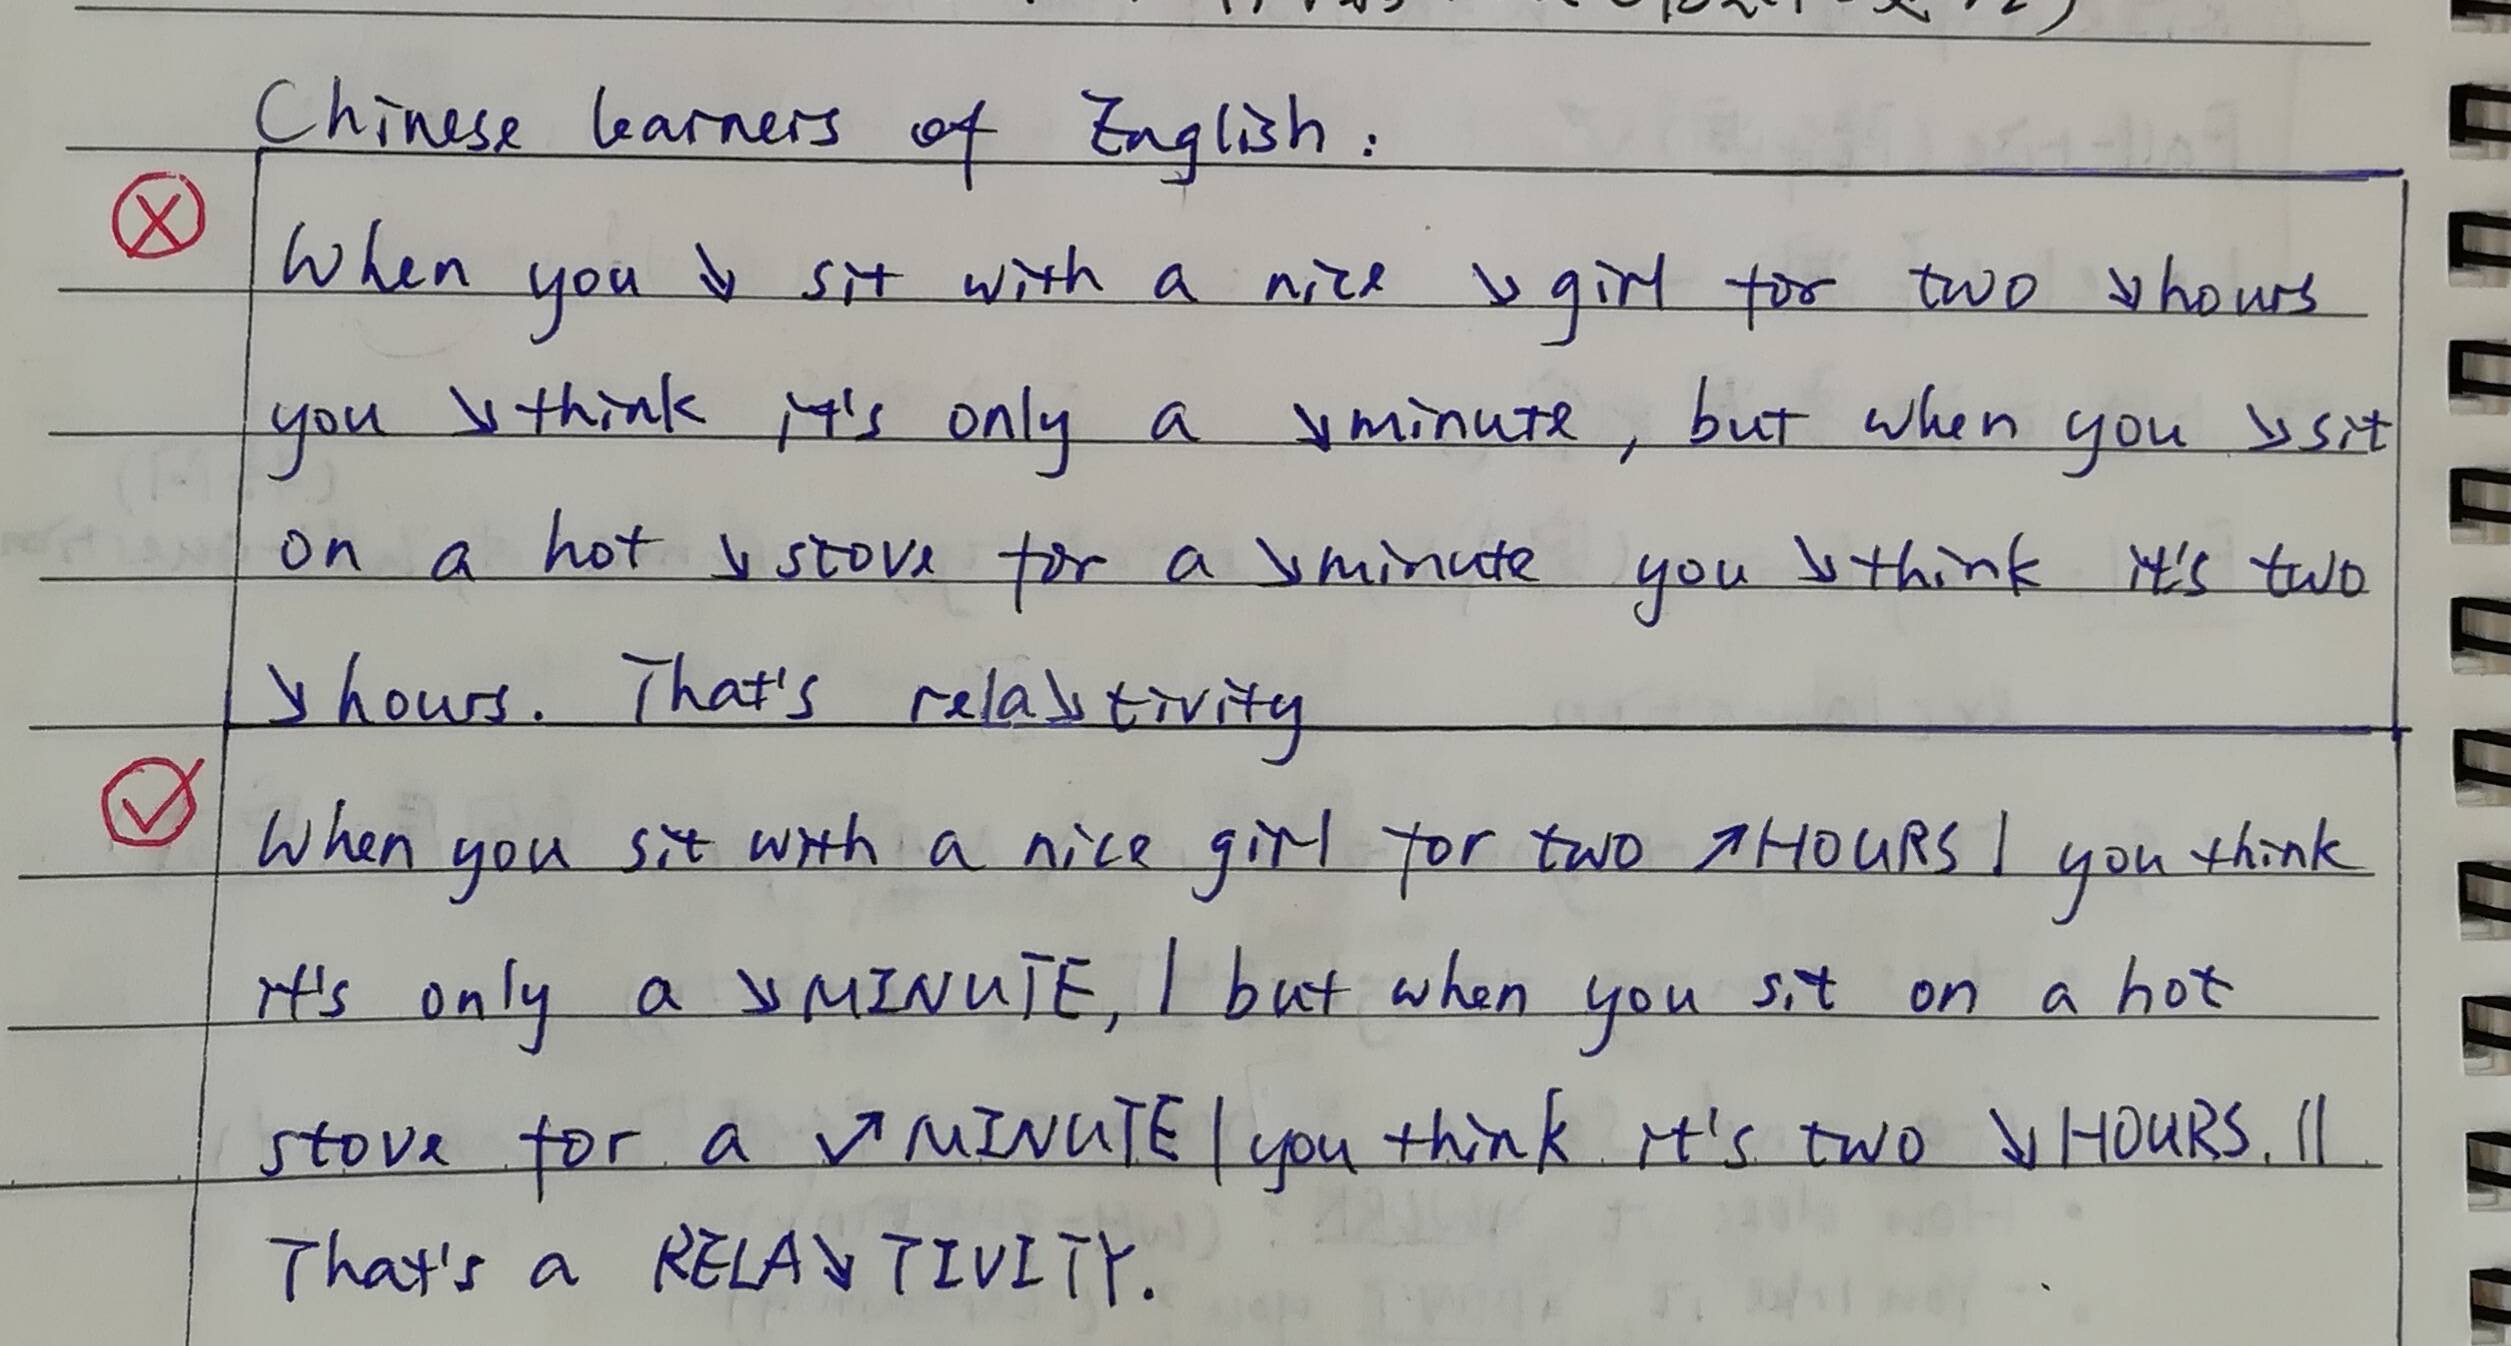 Chinese learners of English:
When you ↘ sit with a nice ↘ girl for two ↘ hours
you ↘ think it's only a ↘ minute, but when you ↘ sit
on a hot ↘ stove for a ↘ minute you ↘ think it's two
↘ hours. That's rela↘tivity
When you sit with a nice girl for two ↗ HOURS | you think
it's only a ↘ MINUTE, | but when you sit on a hot
stove for a ↘↗ MINUTE | you think it's two ↘ HOURS. ||
That's a RELA↘TIVITY.